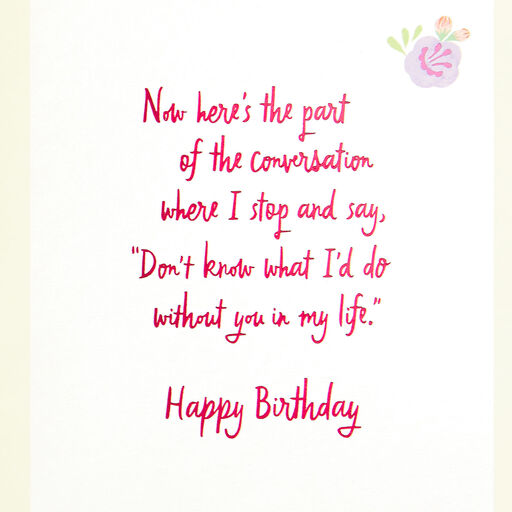 Now here's the part
of the conversation
where I stop and say,
"Don't know what I'd do
without you in my life."
Happy Birthday